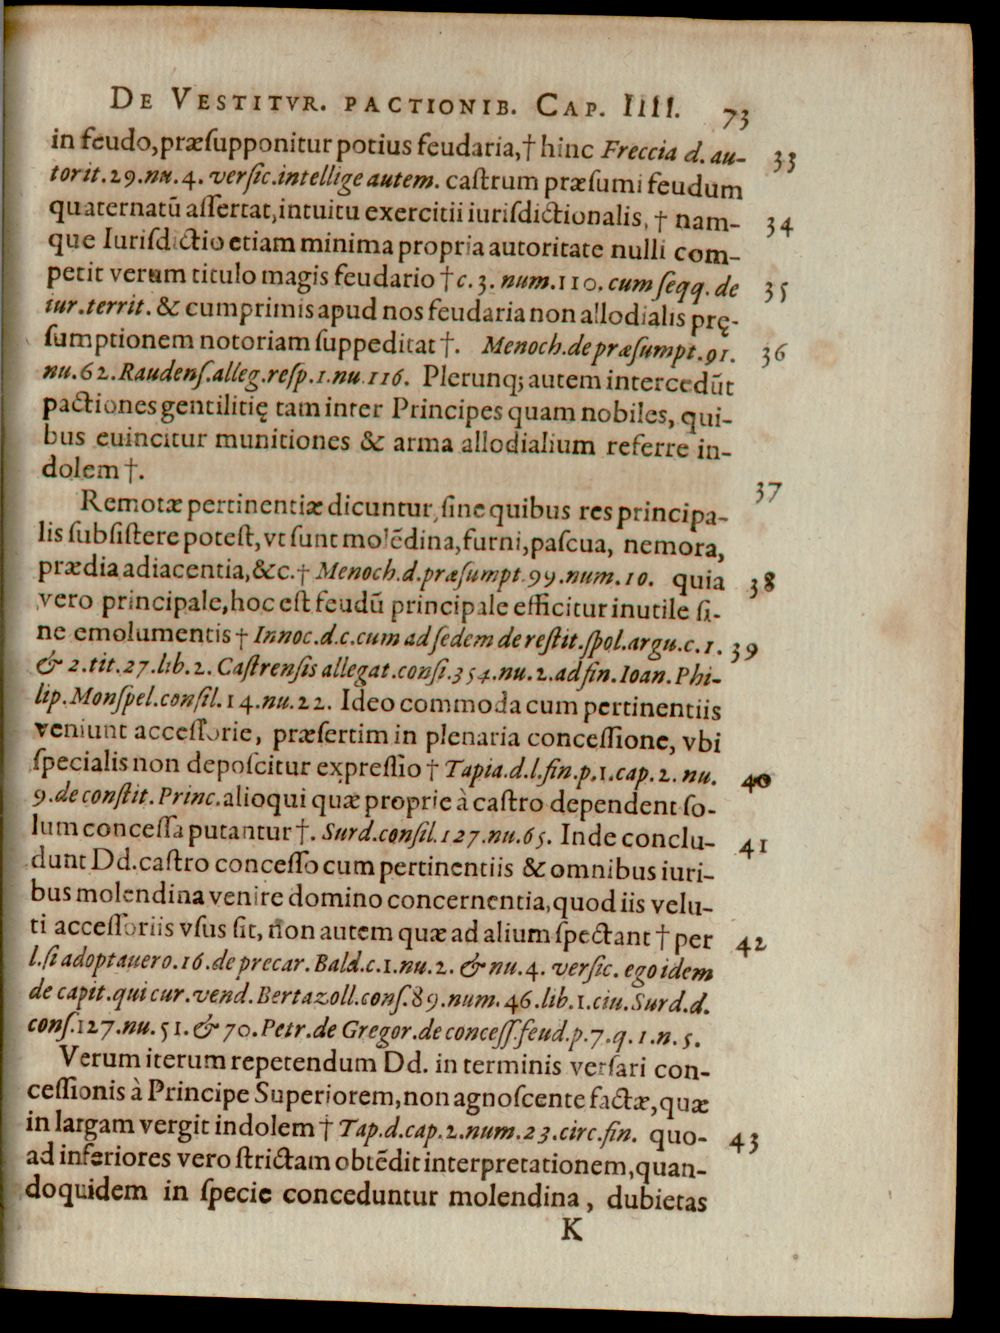 DE VESTITVR. PACTIONIB. CAP. IIII. 73
in feudo,præſupponitur potius feudaria,† hinc Freccia d. au- 33
torit.29.nu.4. verſic.intellige autem. caſtrum præſumi feudum
quaternatū aſſertat,intuitu exercitii iurisdictionalis, † nam- 34
que Iurisdictio etiam minima propria autoritate nulli com-
petit verum titulo magis feudario † c.3. num.110. cum ſeqq. de 35
iur.territ. & cumprimis apud nos feudaria non allodialis prę-
ſumptionem notoriam ſuppeditat †. Menoch.de præſumpt.91. 36
nu.62.Raudenſ.alleg.reſp.1.nu.116. Plerunq; autem intercedūt
pactiones gentilitię tam inter Principes quam nobiles, qui-
bus euincitur munitiones & arma allodialium referre in-
dolem †. 37
Remotæ pertinentiæ dicuntur, ſine quibus res principa-
lis ſubſiſtere poteſt,vt ſunt molēdina,furni,paſcua, nemora,
prædia adiacentia,&c.† Menoch.d.præſumpt.99.num.10. quia 38
vero principale,hoc eſt feudū principale efficitur inutile ſi-
ne emolumentis † Innoc.d.c.cum ad ſedem de reſtit.ſpol.argu.c.1. 39
& 2.tit.27.lib.2. Caſtrenſis allegat.conſi.354.nu.2.ad fin.Ioan.Phi-
lip.Monſpel.conſil.14.nu.22. Ideo commoda cum pertinentiis
veniunt acceſſorie, præſertim in plenaria conceſſione, vbi
ſpecialis non depoſcitur expreſſio † Tapia.d.l.fin.p.1.cap.2. nu. 40
9.de conſtit. Princ.alioqui quæ proprie à caſtro dependent ſo-
lum conceſſa putantur †. Surd.conſil.127.nu.65. Inde conclu- 41
dunt Dd.caſtro conceſſo cum pertinentiis & omnibus iuri-
bus molendina venire domino concernentia,quod iis velu-
ti acceſſoriis vſus ſit, non autem quæ ad alium ſpectant † per 42
l.ſi adoptauero.16.de precar.Bald.c.1.nu.2. & nu.4. verſic. ego idem
de capit.qui cur.vend.Bertazoll.conſ.89.num.46.lib.1.ciu.Surd.d.
conſ.127.nu.51.& 70.Petr.de Gregor.de conceſſ.feud.p.7.q.1.n.5.
Verum iterum repetendum Dd. in terminis verſari con-
ceſſionis à Principe Superiorem,non agnoſcente factæ,quæ
in largam vergit indolem † Tap.d.cap.2.num.23.circ.fin. quo- 43
ad inferiores vero ſtrictam obtēdit interpretationem,quan-
doquidem in ſpecie conceduntur molendina, dubietas
K